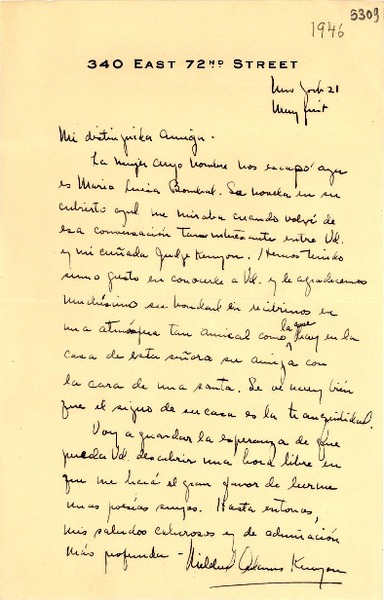 5309
1946
340 EAST 72ND STREET
New York 21
May first
Mi distinguida amiga -
La mujer cuyo nombre nos escapó ayer
es Maria Luisa Bombal. Su novela en su
cubierto azul me miraba cuando volví de
esa conversación tan interesante entre Vd.
y mi cuñada Judge Kenyon. Hemos tenido
sumo gusto en conocerle a Vd. y le agradecemos
muchísimo su bondad en recibirnos en
una atmósfera tan amical como la que hay en la
casa de esta señora su amiga con
la cara de una santa. Se ve muy bien
que el signo de su casa es la tranquilidad.
Voy a guardar la esperanza de que
pueda Vd. descubrir una hora libre en
que me hará el gran favor de leerme
unas poesías suyas. Hasta entonces,
mis saludos calurosos y de admiración
más profunda - Mildred Adams Kenyon